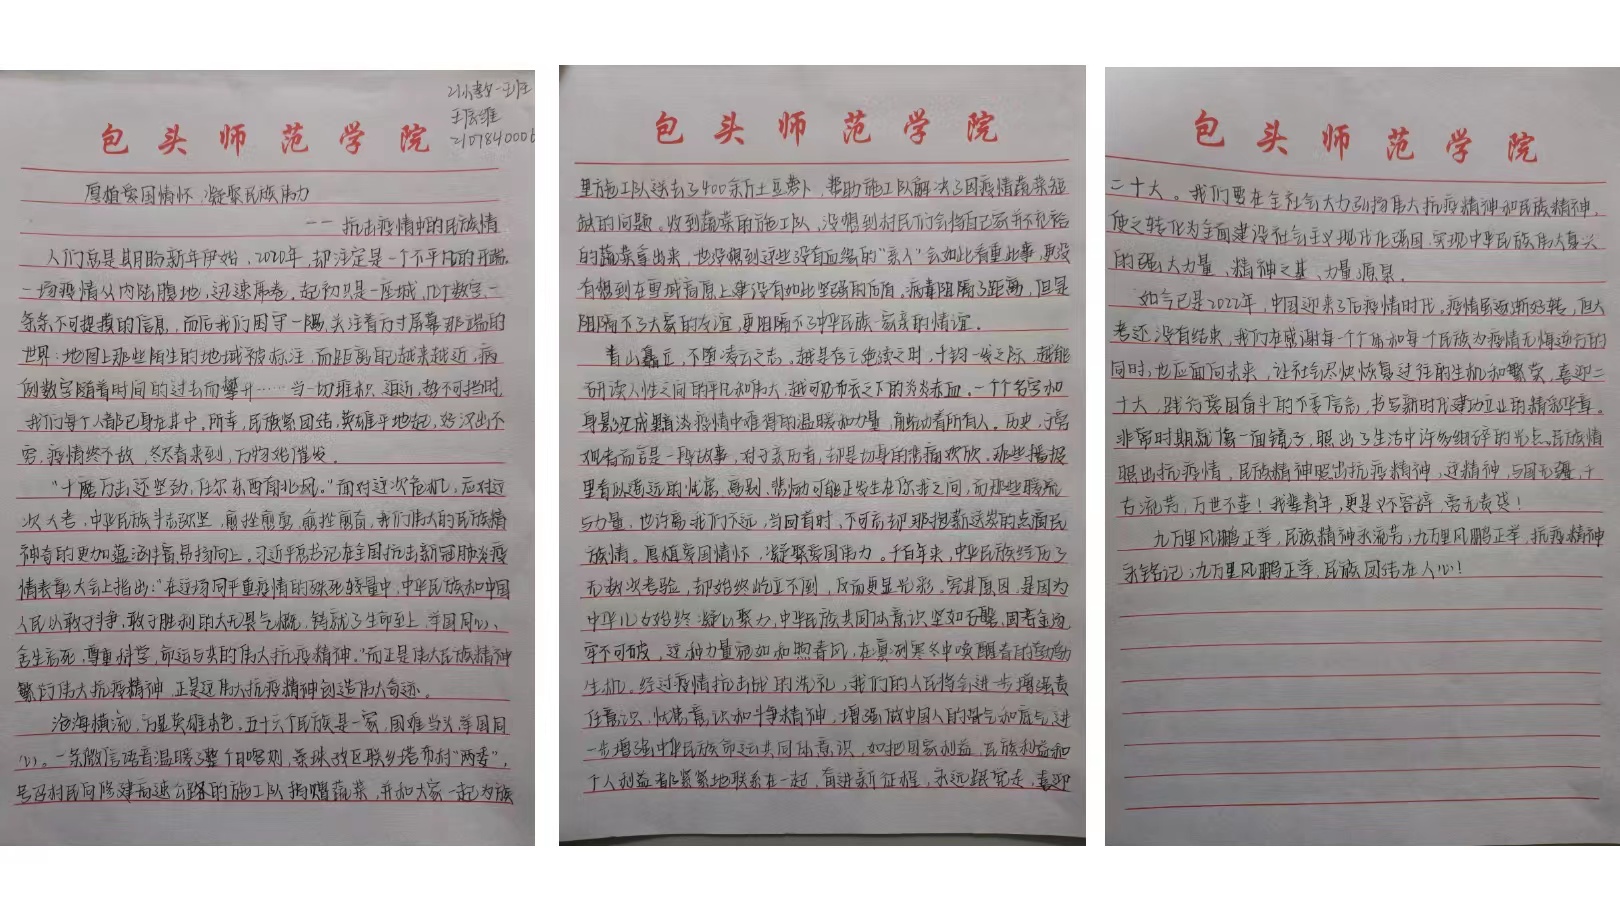 21小教一班
2107840006
包头师范学院
厚植爱国情怀,凝聚民族伟力
——抗击疫情中的民族情
人们总是期盼新年伊始,2020年,却注定是一个不平凡的开端。
一场疫情从内陆腹地,迅速席卷。起初只是一座城,几个数字,一
条条不可捉摸的信息,而后我们困守一隅,关注着方寸屏幕那端的
世界:地图上那些陌生的地域被标注,而距离自己越来越近,病
例数字随着时间的过去而攀升……当一切堆积、逼近,势不可挡时,
我们每个人都已身在其中。所幸,民族紧团结,英雄平地起,好汉出不
穷,疫情终不敌,终会春来到,万物始催发。
“千磨万击还坚劲,任尔东西南北风。”面对这次危机,应对这
次大考,中华民族斗志弥坚,愈挫愈勇,愈挫愈奋,我们伟大的民族精
神奋的更加蕴涵丰富,昂扬向上。习近平总书记在全国抗击新冠肺炎疫
情表彰大会上指出:“在这场同严重疫情的殊死较量中,中华民族和中国
人民以敢于斗争、敢于胜利的大无畏气概,铸就了生命至上、举国同心、
舍生忘死、尊重科学、命运与共的伟大抗疫精神。”而正是伟大民族精神
繁衍伟大抗疫精神,正是这伟大抗疫精神创造伟大奇迹。
沧海横流,方显英雄本色。五十六个民族是一家,困难当头,举国同
心。一条微信语音温暖了整个日喀则,桑珠孜区联乡塔布村“两委”,
号召村民向修建高速公路的施工队捐赠蔬菜,并和大家一起为族
包头师范学院
里施工队送去了400余斤土豆萝卜,帮助施工队解决了因疫情蔬菜短
缺的问题。收到蔬菜的施工队,没想到村民们会将自己家并不充裕
的蔬菜拿出来,也没想到这些没有血缘的“亲人”会如此看重此事,更没
有想到在雪域高原上建设有如此坚强的后盾。病毒阻隔了距离,但是
阻隔不了大家的友谊,更阻隔不了中华民族一家亲的情谊。
青山矗立,不堕凌云之志。越是存亡绝续之时,千钧一发之际,越能
研读人性之间的平凡和伟大,越可见布衣之下的炎炎赤血。一个个名字和
身影汇成黯淡疫情中难得的温暖和力量,能触动着所有人。历史,于旁
观者而言是一段故事,对于亲历者,却是切身的悲痛欢欣。那些播报
里看似遥远的忧虑、离别、悲恸可能正发生在你我之间,而那些暖流
与力量,也许离我们不远,当回首时,不可忘却那抱薪送炭的点滴民
族情。厚植爱国情怀,凝聚爱国伟力。千百年来,中华民族经历了
无数次考验,却始终屹立不倒,反而更显光彩,究其原因,是因为
中华儿女始终凝心聚力,中华民族共同体意识坚如石磐,固若金汤
牢不可破,这种力量宛如和煦春风,在凛冽寒冬中唤醒春的勃勃
生机。经过疫情抗击战的洗礼,我们的人民将会进一步增强责
任意识,忧患意识和斗争精神,增强做中国人的骨气和底气,进
一步增强中华民族命运共同体意识,如把国家利益,民族利益和
个人利益都紧紧地联系在一起,奋进新征程,永远跟党走,喜迎
包头师范学院
二十大。我们要在全社会大力弘扬伟大抗疫精神和民族精神,
使之转化为全面建设社会主义现代化强国,实现中华民族伟大复兴
的强大力量,精神之基、力量源泉。
如今已是2022年,中国迎来了后疫情时代。疫情虽逐渐好转,但大
考还没有结束,我们在感谢每一个个体和每个民族为疫情无悔逆行的
同时,也应面向未来,让社会尽快恢复过往的生机和繁荣,喜迎二
十大,践行爱国奋斗的不变信念,书写新时代建功立业的精彩华章。
非常时期就像一面镜子,照出了生活中许多细碎的光点。民族情
照出抗疫情,民族精神照出抗疫精神,这精神,与国无疆,千
古流芳,万世不奎!我辈青年,更是义不容辞,旁无责贷!
九万里风鹏正举,民族精神永流芳;九万里风鹏正举,抗疫精神
永铭记;九万里风鹏正举,民族团结在人心!